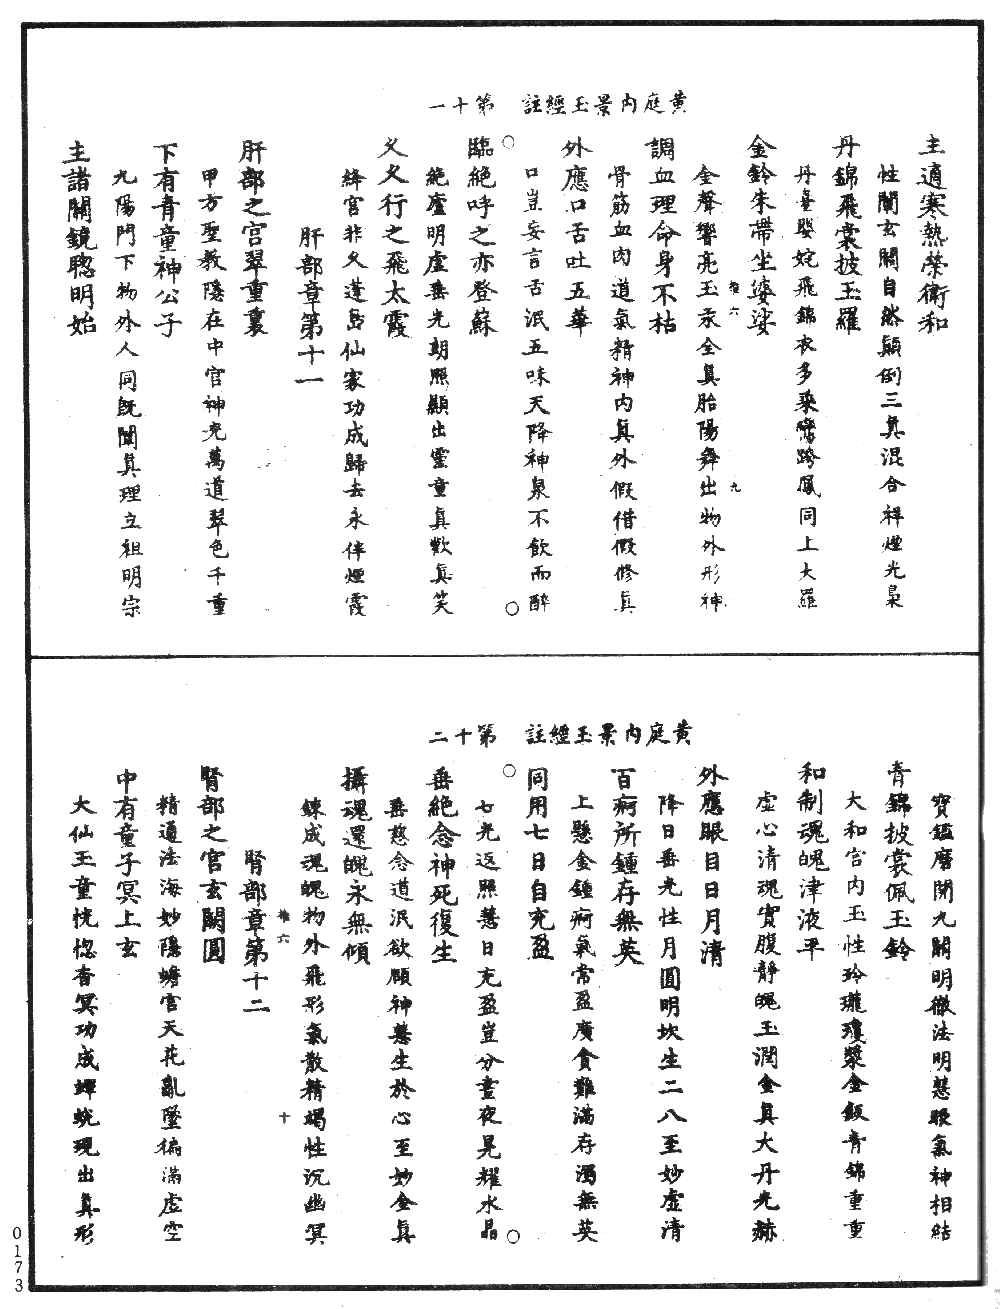 黃庭內景玉經註　第十一
主適寒熱榮衛和
性闡玄關自然顛倒三真混合祥煙光梟
丹錦飛裳披玉羅
丹臺娶姹飛錦衣多乘鸞跨鳳同上大羅
金鈴朱帶坐婆娑
金聲響亮玉汞全真胎陽舞出物外形神
推六　九
調血理命身不枯
骨筋血肉道氣精神內真外假借假修真
外應口舌吐五華
口豈妄言舌泯五味天降神泉不飲而醉
臨絕呼之亦登蘇
絕慮明虛垂光朗照顯出靈童真歡真笑
久久行之飛太霞
絳宮非久蓬島仙家功成歸去永伴煙霞
肝部章第十一
肝部之宮翠重裏
甲方聖教隱在中宮神光萬道翠色千重
下有青童神公子
九陽門下物外人同既闡真理立祖明宗
主諸關鏡聰明始
黃庭內景玉經註　第十二
寶鑑磨開九關明徹法明慧眼氣神相結
青錦披裳佩玉鈴
大和宮內玉性玲瓏瓊漿金飯青錦重重
和制魂魄津液平
虛心清魂實腹靜魄玉潤金真大丹光赫
外應眼目日月清
降日垂光性月圓明坎生二八至妙虛清
百痾所鍾存無英
上懸金鍾痾氣常盈廣貪難滿存濁無英
同用七日自充盈
七光返照慧日充盈豈分晝夜晃耀水晶
垂絕念神死復生
垂慈念道泯欲願神慧生於心至妙金真
攝魂還魄永無傾
鍊成魂魄物外飛形氣散精竭性沉幽冥
推六　十
腎部章第十二
腎部之宮玄闕圓
精通法海妙隱蟾宮天花亂墜徧滿虛空
中有童子冥上玄
大仙玉童恍惚杳冥功成蟬蛻現出真形
0173